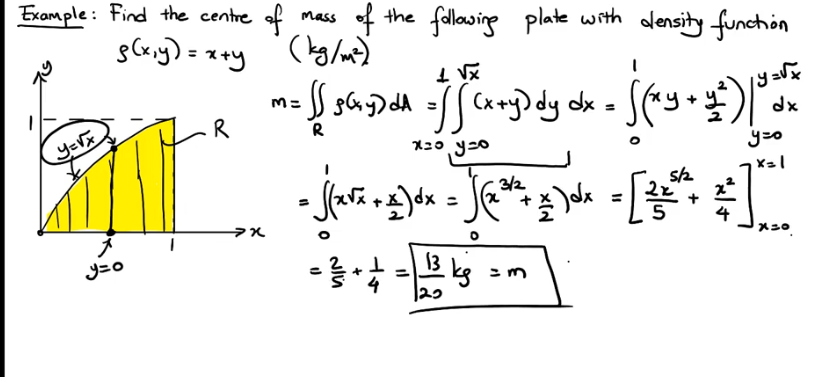 Example: Find the centre of mass of the following plate with density function
ρ(x,y) = x+y (kg/m²)
y
1
y=√x
R
x
1
y=0
m = ∬_R ρ(x,y) dA = ∫_{x=0}^{1} ∫_{y=0}^{√x} (x+y) dy dx = ∫_0^1 (xy + y²/2) |_{y=0}^{y=√x} dx
= ∫_0^1 (x√x + x/2) dx = ∫_0^1 (x^{3/2} + x/2) dx = [2x^{5/2}/5 + x²/4]_{x=0}^{x=1}
= 2/5 + 1/4 = 13/20 kg = m